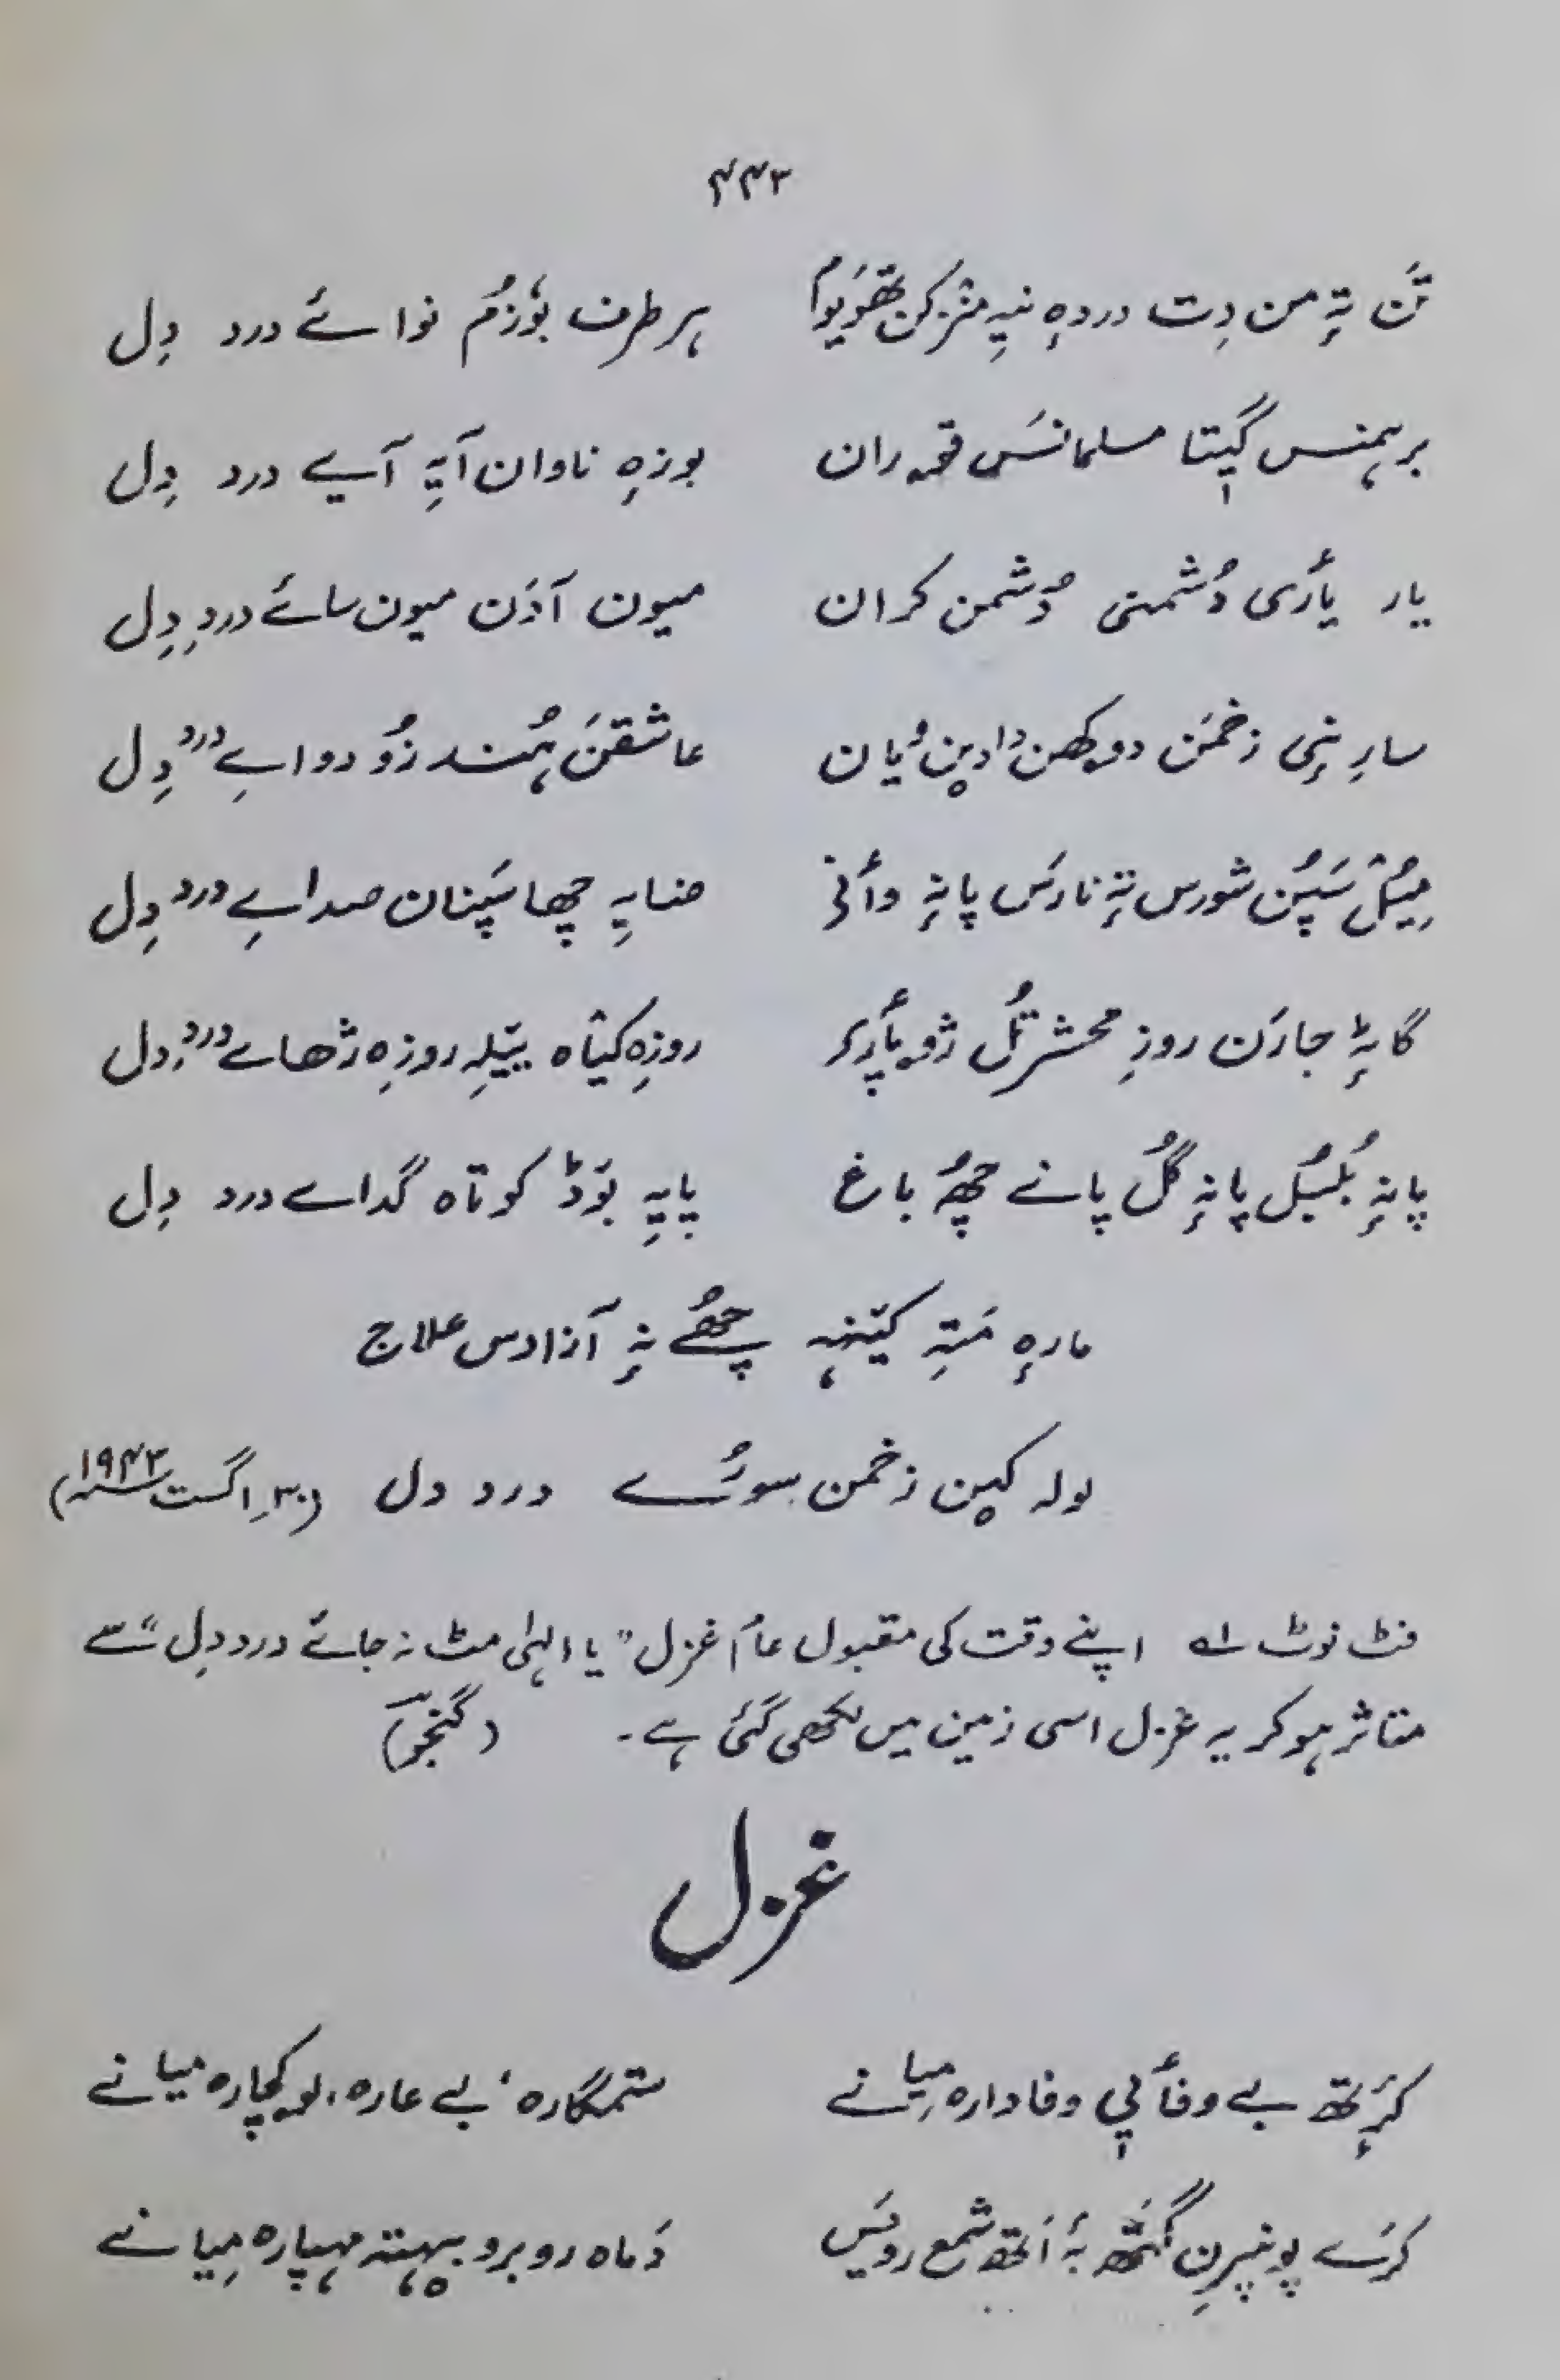 ۴۴۳
تَن تہٕ من دِت دردہٕ نیہِ منٛز کن تھوٚیوم ہر طرف بوٗزُم نوائے درد دِل
برہمنس گیٖتا مسلمانسَ قۄران بوزہٕ ناوان آیہِ آیے درد دِل
یار یٲری دُشمنی دُشمن کران میون آدَن میون سائے دردِ دِل
سارِنٕی زخمَن دوکھن دٲدین یان عاشقنَ ہُند زُو دواے دردِ دِل
میٚژ سَپُن شورس تہٕ نارَس پانہٕ وٲنی ضایہِ چھا سَپنان صداے دردِ دِل
گاہٕ جارَن روزِ محشر تُل ژۄپٲرِکر روزِ کیٛاہ ییٚلہِ روزہِ ژھاے دردِ دل
پانہٕ بُلبُل پانہٕ گُل پانے چھُ باغ پایہِ بوٚڈ کوتاہ گداے درد دِل
مارہٕ مَتہِ کیٚنہہ چھُے نہٕ آزادس علاج
لولہ کین زخمن سورُے درد دل (۳۰؍ اگست ۱۹۴۳؁)
فٹ نوٹ ؂۱ اپنے وقت کی مقبول عام غزل "یا الہٰی مٹ نہ جائے درد دِل" سے
متاثر ہوکر یہ غزل اسی زمین میں لکھی گئی ہے۔ (گنجو)
غزل
کرٕتھ بے وفٲیی وفادارہ مِیانے ستمگارہ، بے عارہ، لۄکچارہ میانے
کرَے پونپرِن گتھ بہٕ اَتھ شمع رویَس دَماہ روبرو بیہتہ مہپارہ مِیانے